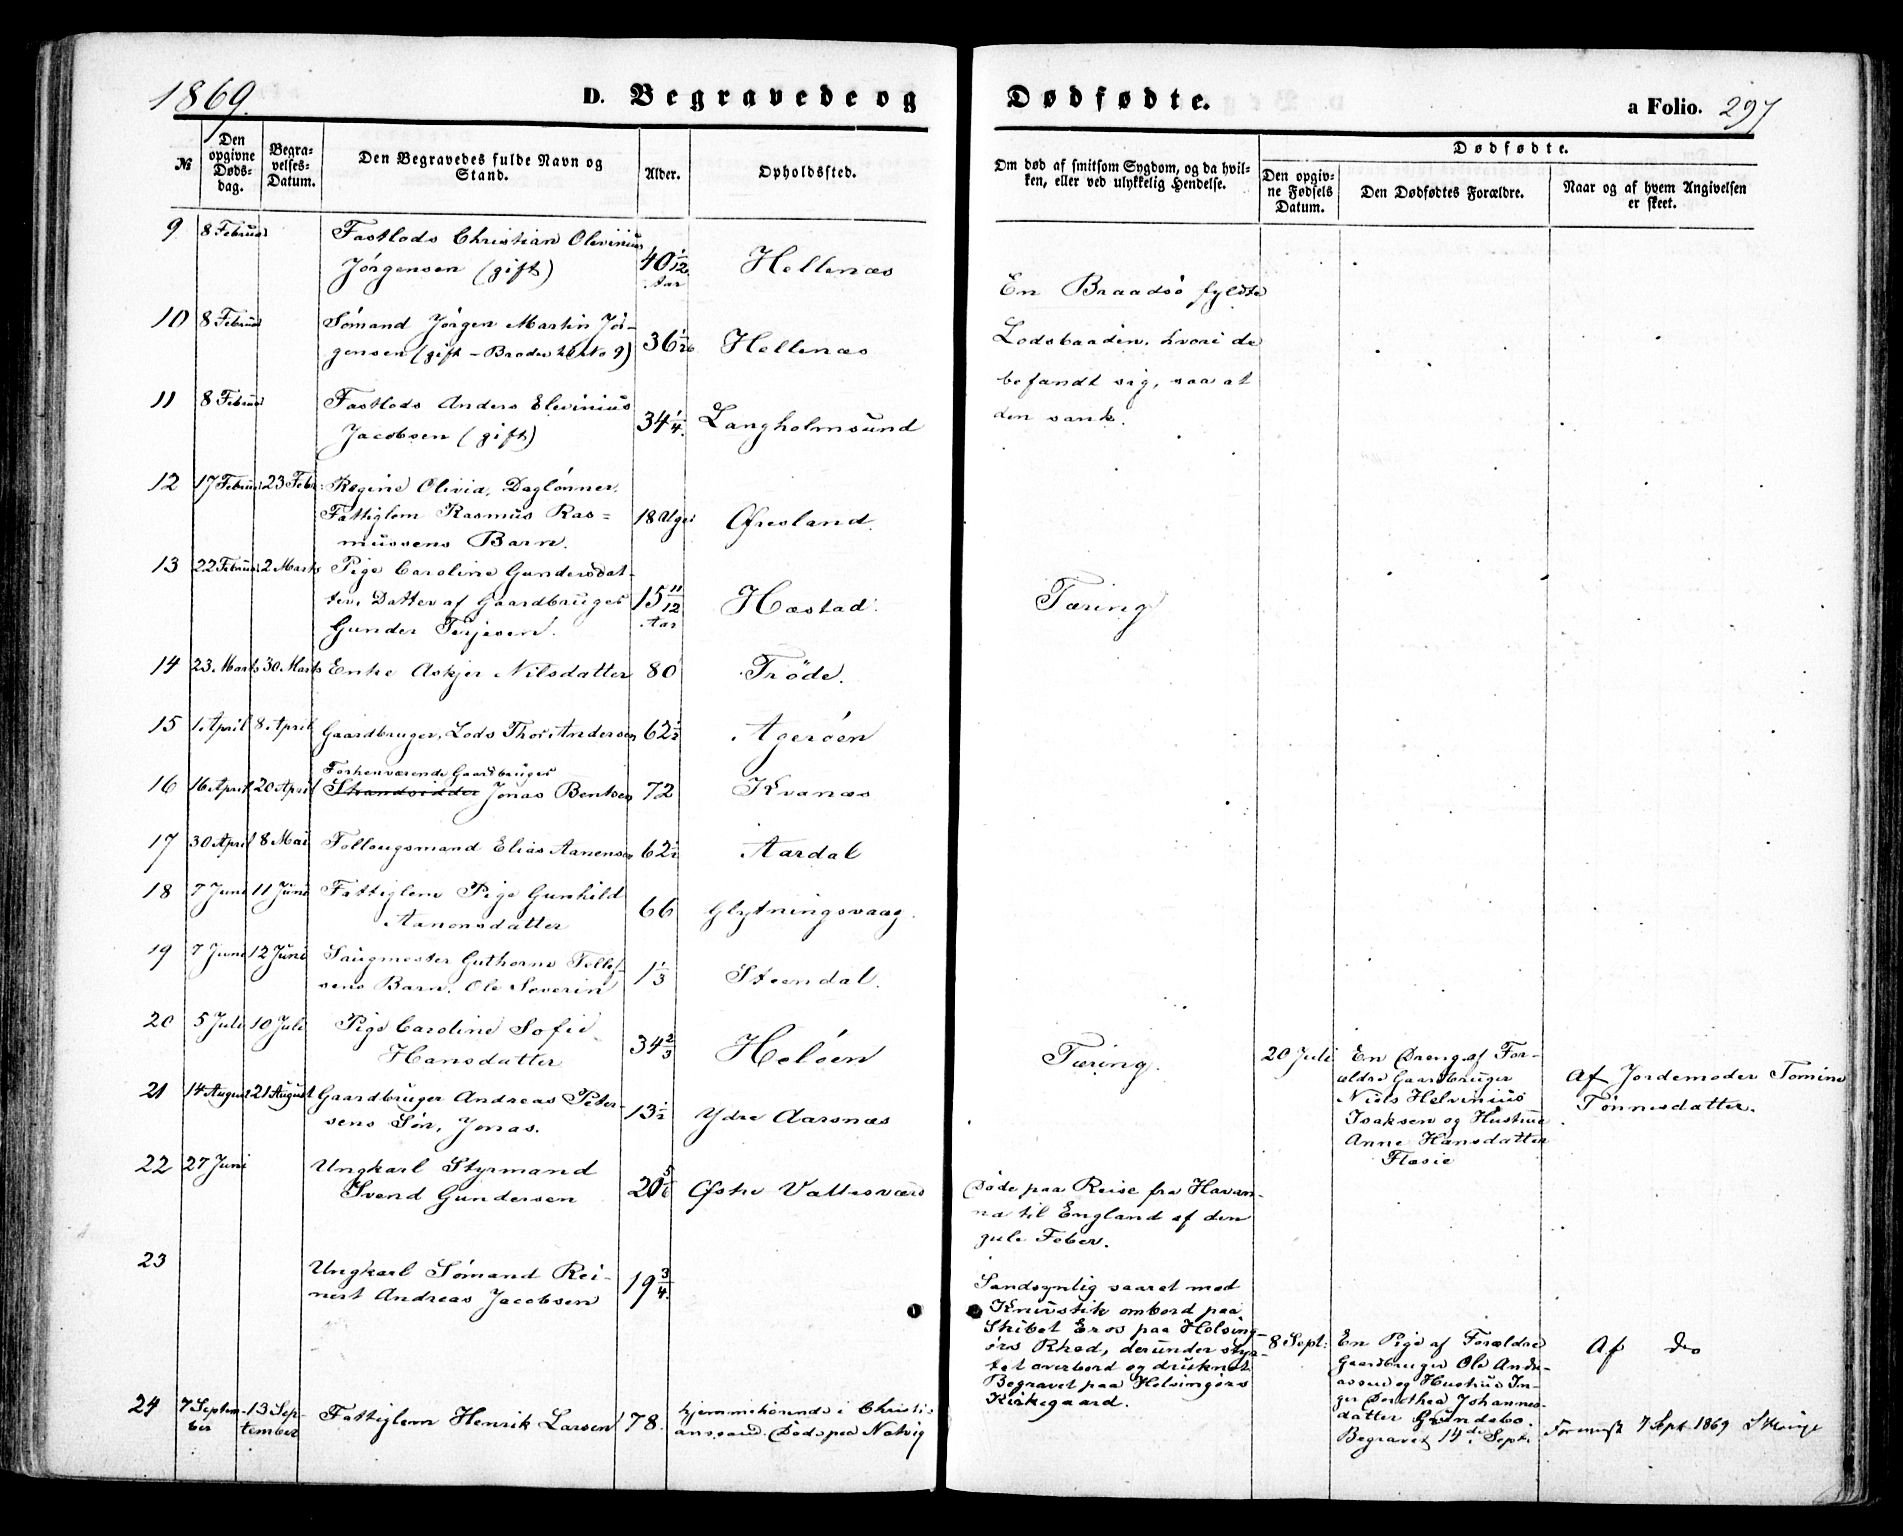 1869.
D. Begravede og Dødfødte.
a Folio. 297
№
Den opgivne Døds-dag.
Begra-velses-Datum.
Den Begravedes fulde Navn og Stand.
Alder.
Opholdssted.
Om død af smitsom Sygdom, og da hvil-
ken, eller ved ulykkelig Hendelse.
Dødfødte.
Den opgiv-ne Fødsels Datum.
Den Dødfødtes Forældre.
Naar og af hvem Angivelsen er skeet.
9 8 Februar Fastlods Christian Olevinius
Jørgensen (gift) 40 1/12 Aar Hellenæs
10 8 Februar Sømand Jørgen Martin Jör-
gensen (gift - Broder til No 9) 36 Hellenæs
11 8 Februar Fastlods Anders Elevinius
Jacobsen (gift) 34 1/4. Langholmsund
En Braadsø fyldte
Lodsbaaden, hvori de
befandt sig, saa at
den sank.
12 17 Februar 23 Febr. Regine Olivia, Daglønner,
Fattiglem Rasmus Ras=
mussens Barn. 18 Uger Øresland.
13 22 Februar 2 Marts Pige Caroline Gundersdat-
ter, Datter af Gaardbruger
Gunder Terjesen. 15 11/12 Aar Hæstad. Tæring
14 23. Marts 30. Marts Enke Askjer Nilsdatter 80 Trøde.
15 1. April 8. April Gaardbruger, Lods Thor Andersen 62 1/2 Agerøen
16 16 April 20 April Forhenværende Gaardbruger
Strandsidder Jonas Bentsen 72 Kvanæs
17 30 April 8 Mai Follougsmand Elias Aanensen 62 1/2 Aardal
18 7 Juni 11 Juni Fattiglem Pige Gunhild
Aanensdatter 66 Glytningsvaag.
19 7 Juni 12 Juni Saugmester Guthorm Tellef-
sens Barn. Ole Severin 1 1/3 Steendal.
20 5 Juli 10 Juli Pige Caroline Sofie
Hansdatter 34 2/3 Heløen Tæring.
21 14 August 21 August Gaardbruger Andreas Peter-
sens Søn, Jonas. 13 1/2 Ydre Aarsnæs
20 Juli En Dreng af For-
ældre Gaardbruger
Niels Helvinius
Isaksen og Hustrue
Anne Hansdatter
Flæsie
Af Jordemoder Tomine
Tønnesdatter.
22 27 Juni Ungkarl Styrmand
Svend Gundersen 20 5/6 Østre Vallesværd
Døde paa Reise fra Havan-
na til England af den
gule Feber.
23 Ungkarl Sømand Rei-
nert Andreas Jacobsen 19 3/4.
Sandsynlig saaret med
Knivstik ombord paa
Skibet Eros paa Helsing-
örs Rhed, derunder styr-
tet overbord og druknet.
Begravet paa Helsingörs
Kirkegaard.
8 Sept: En Pige af Forældre
Gaardbruger Ole Andr-
assen og Hustrue In-
ger Dorothea Johannes-
datter Grøndsbo.
Begravet 14de Sept:
Af do
24 7 Septem-
ber 13 Sep-
tember Fattiglem Henrik Larsen 78. Hjemmehørende i Christi-
anssand. Død paa Natvig
7 Sept 1869